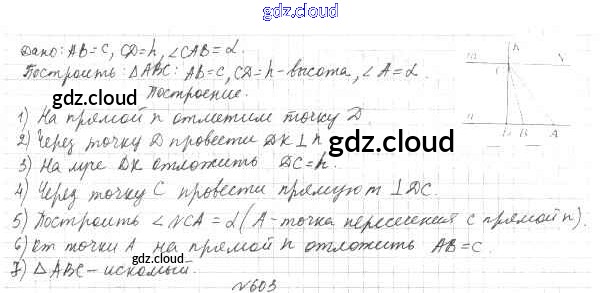 gdz.cloud
Дано: AB=c, CD=h, ∠CAB=α.
Построить: △ABC: AB=c, CD=h-высота, ∠A=α.
Построение.
gdz.cloud
gdz.cloud
1) На прямой n отметим точку D.
2) Через точку D провести DK⊥n
3) На луче DK отложить DC=h.
gdz.cloud
4) Через точку C провести прямую m⊥DC.
5) Построить ∠NCA=α (A-точка пересечения с прямой n).
6) От точки A на прямой n отложить AB=c.
7) △ABC-искомый.
gdz.cloud
gdz.cloud
№603
K
m
N
C
n
D
B
A